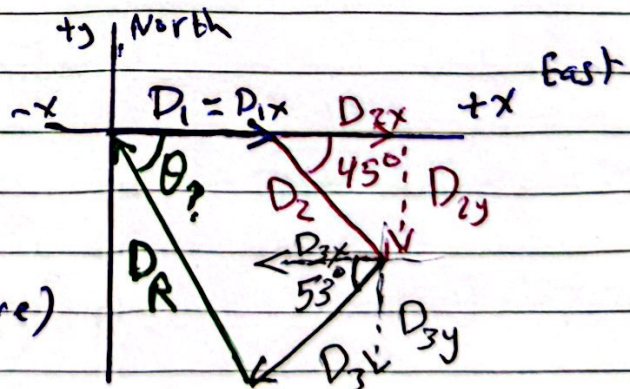 +y North
East
-x D₁ = D₁ₓ D₂ₓ +x
θ? 45° D₂ D₂y
D₃ₓ
D_R 53°
re) D₃y
D₃